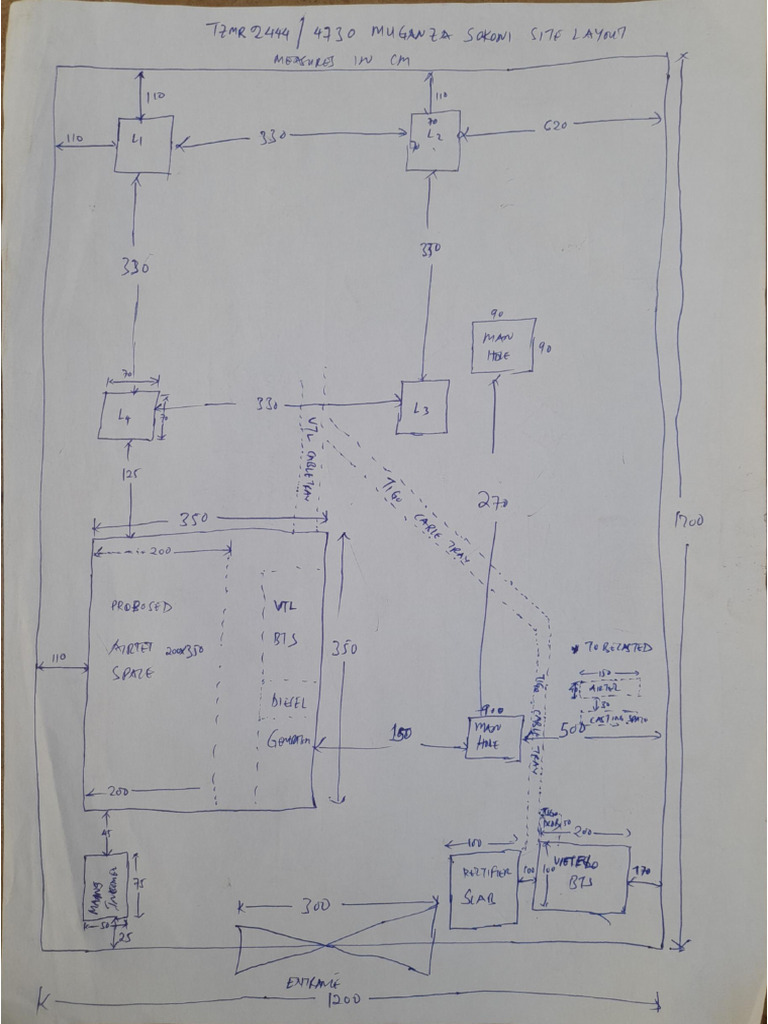 TZMR2444/4730 MUGANZA SOKONI SITE LAYOUT
MEASURES IN CM
110
110
110
L1
330
70
L2
70
620
330
330
90
MAN
HOLE
90
70
L4
70
330
L3
125
VTL CABLE TRAY
TIGO CABLE TRAY
270
1700
350
200
PROPOSED
AIRTEL 200X350
SPACE
VTL
BTS
DIESEL
GENERATOR
350
110
TO BE CASTED
150
AIRTEL
50
500
900
MAN
HOLE
TIGO CABLE TRAY
200
45
MAINS
75
50
25
300
100
RECTIFIER
SLAB
100
200
100
BTS
170
ENTRANCE
1200